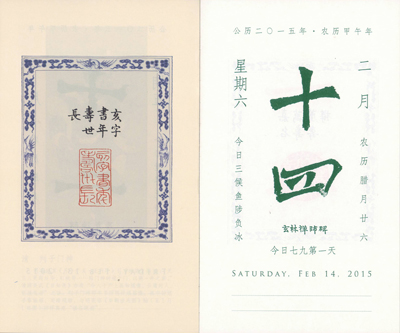 亥字
書年
壽世
長
公历二〇一五年·农历甲午年
二月
十四
星期六
农历腊月廿六
今日三候鱼陟负冰
今日七九第一天
SATURDAY, FEB 14, 2015